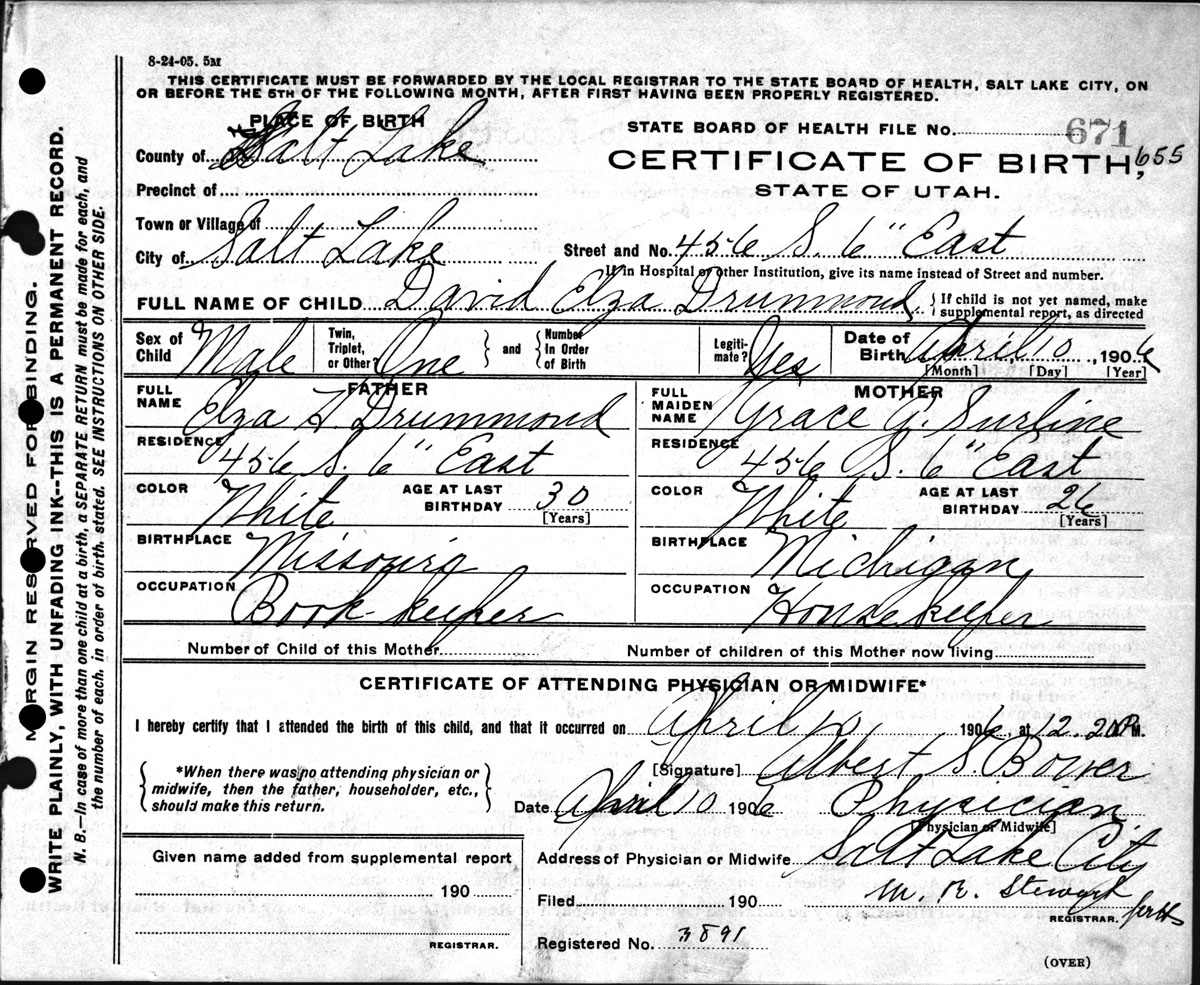 8-24-05. 5M
THIS CERTIFICATE MUST BE FORWARDED BY THE LOCAL REGISTRAR TO THE STATE BOARD OF HEALTH, SALT LAKE CITY, ON
OR BEFORE THE 5TH OF THE FOLLOWING MONTH, AFTER FIRST HAVING BEEN PROPERLY REGISTERED.
PLACE OF BIRTH
STATE BOARD OF HEALTH FILE No. 671
County of Salt Lake
CERTIFICATE OF BIRTH, 655
Precinct of
STATE OF UTAH.
Town or Village of
City of Salt Lake
Street and No. 456 S. 6" East
If in Hospital or other Institution, give its name instead of Street and number.
FULL NAME OF CHILD David Elza Drummond
If child is not yet named, make
supplemental report, as directed
Sex of Child Male Twin, Triplet, or Other? One and Number In Order of Birth Legiti-mate? Yes Date of Birth April 10, 1906
[Month] [Day] [Year]
FATHER MOTHER
FULL NAME Elza Drummond
FULL MAIDEN NAME Grace G. Surline
RESIDENCE 456 S. 6" East
RESIDENCE 456 S. 6" East
COLOR White AGE AT LAST BIRTHDAY 30 [Years]
COLOR White AGE AT LAST BIRTHDAY 26 [Years]
BIRTHPLACE Missouri
BIRTHPLACE Michigan
OCCUPATION Book-keeper
OCCUPATION Housekeeper
Number of Child of this Mother
Number of children of this Mother now living
CERTIFICATE OF ATTENDING PHYSICIAN OR MIDWIFE*
I hereby certify that I attended the birth of this child, and that it occurred on April 10 1906, at 12.20 P.M.
*When there was no attending physician or
midwife, then the father, householder, etc.,
should make this return.
[Signature] Albert S. Bower
Date April 10 1906 Physician
[Physician or Midwife]
Given name added from supplemental report
190
REGISTRAR.
Address of Physician or Midwife Salt Lake City
Filed 190 M. R. Stewart
REGISTRAR.
Registered No. 3891
(OVER)
MARGIN RESERVED FOR BINDING.
WRITE PLAINLY, WITH UNFADING INK--THIS IS A PERMANENT RECORD.
N. B.—In case of more than one child at a birth, a SEPARATE RETURN must be made for each, and
the number of each, in order of birth, stated. SEE INSTRUCTIONS ON OTHER SIDE.